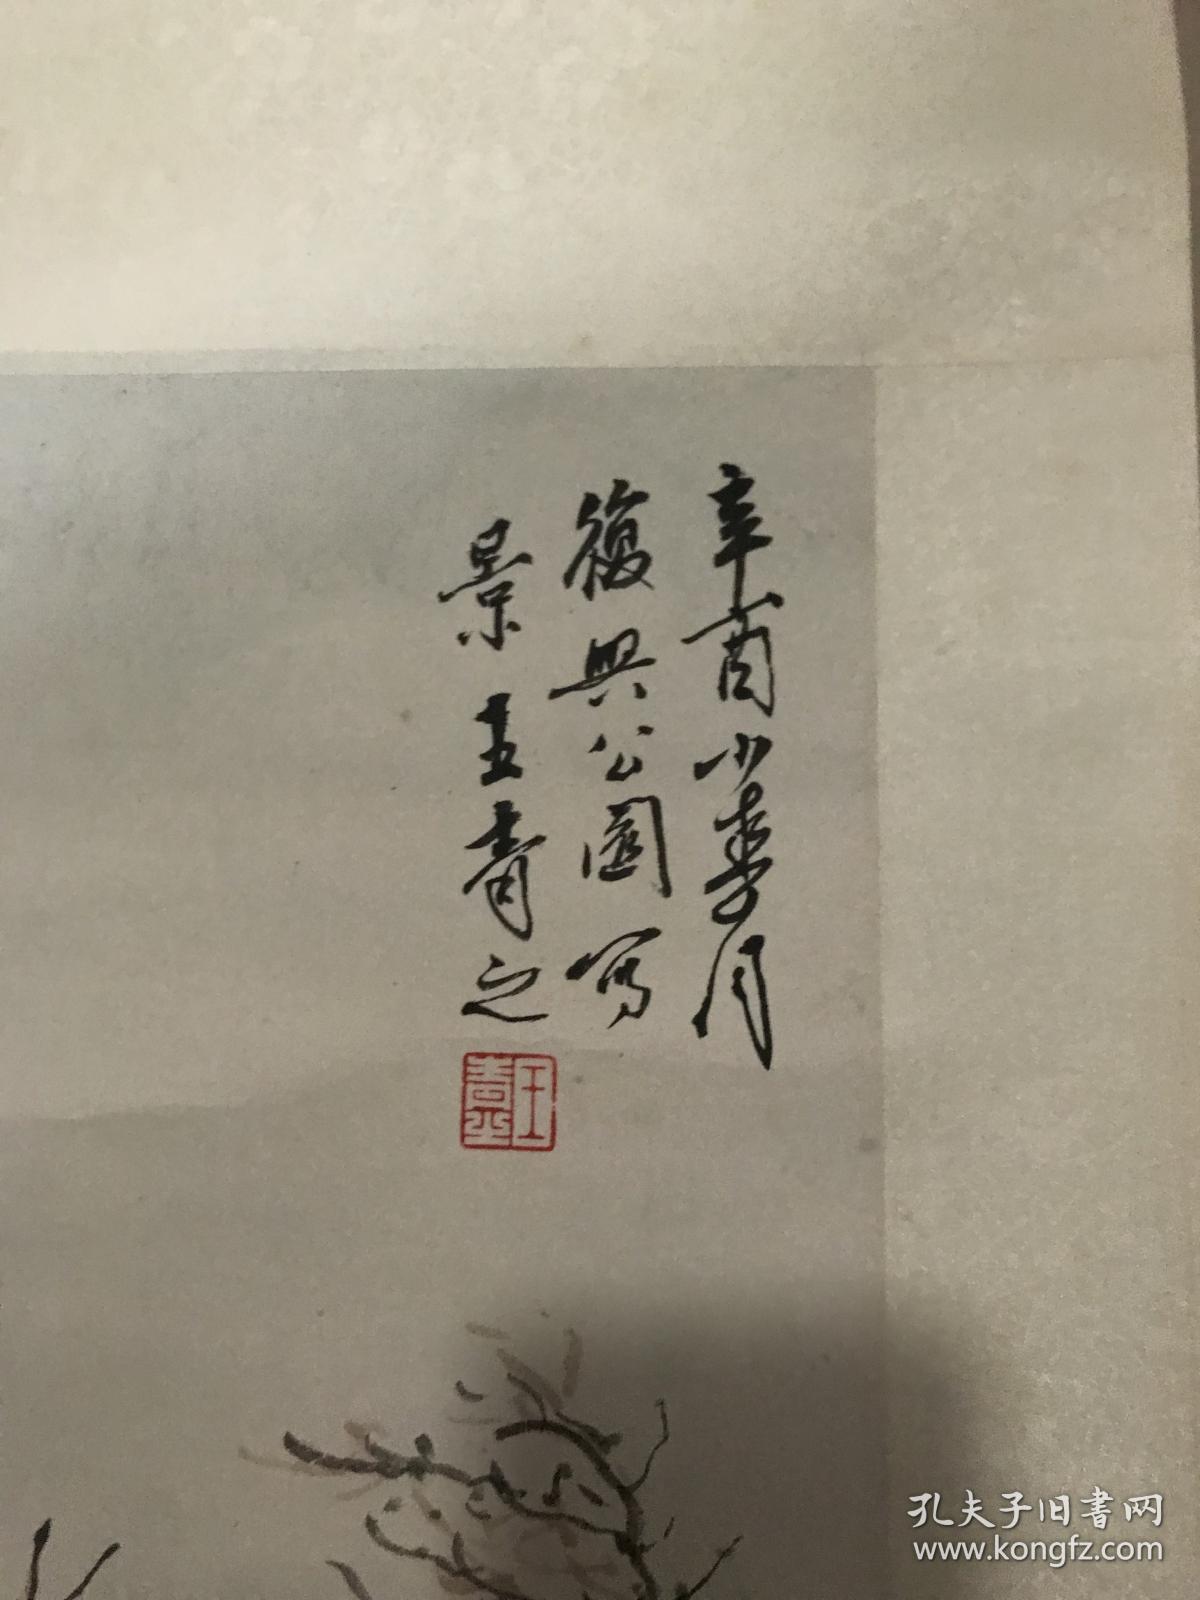 辛酉小春月
復興公園寫
景王青之
孔夫子旧書网
www.kongfz.com